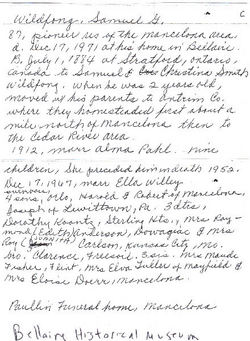 C
Wildfong, Samuel G.
87, pioneer res of the mancelona area
d. Dec 17, 1971 at his home in Bellaire
B. July 1, 1884 at Stratford, ontario,
Canada to Samuel & Christina Smith
Wildfong. When he was 2 years old,
moved w his parents to Antrim Co.
where they homesteaded first about a
mile north of Mancelona then to
the Cedar River area
1912, marr alma Pahl. nine
children, She preceded him in death 1952.
Dec 17, 1967, marr Ella Willey
survivors
4 sons, Orlo, Harold & Robert of Mancelona,
Joseph of Levittown, Pa. 3 dtrs,
Dorothy Koontz, Sterling Hts., Mrs Ray-
mond (Edith) Anderson, Dowagiac & Mrs
Roy (JUANITA) Carlson, Kansas City, Mo.
bro. Clarence, Fresno. 3 sis. Mrs Maude
Fisher, Flint, Mrs Elva Tuller of Mayfield &
Mrs Eloise Doerr, Mancelona.
Paullin Funeral home, Mancelona
Bellaire Historical Museum